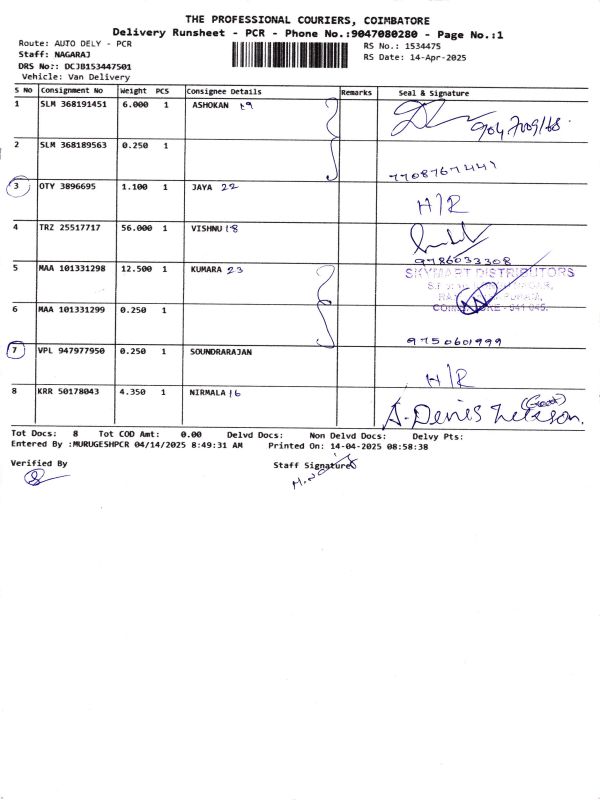 THE PROFESSIONAL COURIERS, COIMBATORE
Delivery Runsheet - PCR - Phone No.:9047080280 - Page No.:1
Route: AUTO DELY - PCR
Staff: NAGARAJ
DRS No:: DCJB153447501
Vehicle: Van Delivery
RS No.: 1534475
RS Date: 14-Apr-2025
S No Consignment No Weight PCS Consignee Details Remarks Seal & Signature
1 SLM 368191451 6.000 1 ASHOKAN 19
2 SLM 368189563 0.250 1
3 OTY 3896695 1.100 1 JAYA 22 H/R
4 TRZ 25517717 56.000 1 VISHNU 18
9786033308
5 MAA 101331298 12.500 1 KUMARA 23 SKYMART DISTRIBUTORS
6 MAA 101331299 0.250 1
9750601999
7 VPL 947977950 0.250 1 SOUNDRARAJAN H/R
8 KRR 50178043 4.350 1 NIRMALA 16 A. Denis
Tot Docs: 8 Tot COD Amt: 0.00 Delvd Docs: Non Delvd Docs: Delvy Pts:
Entered By :MURUGESHPCR 04/14/2025 8:49:31 AM Printed On: 14-04-2025 08:58:38
Verified By Staff Signature